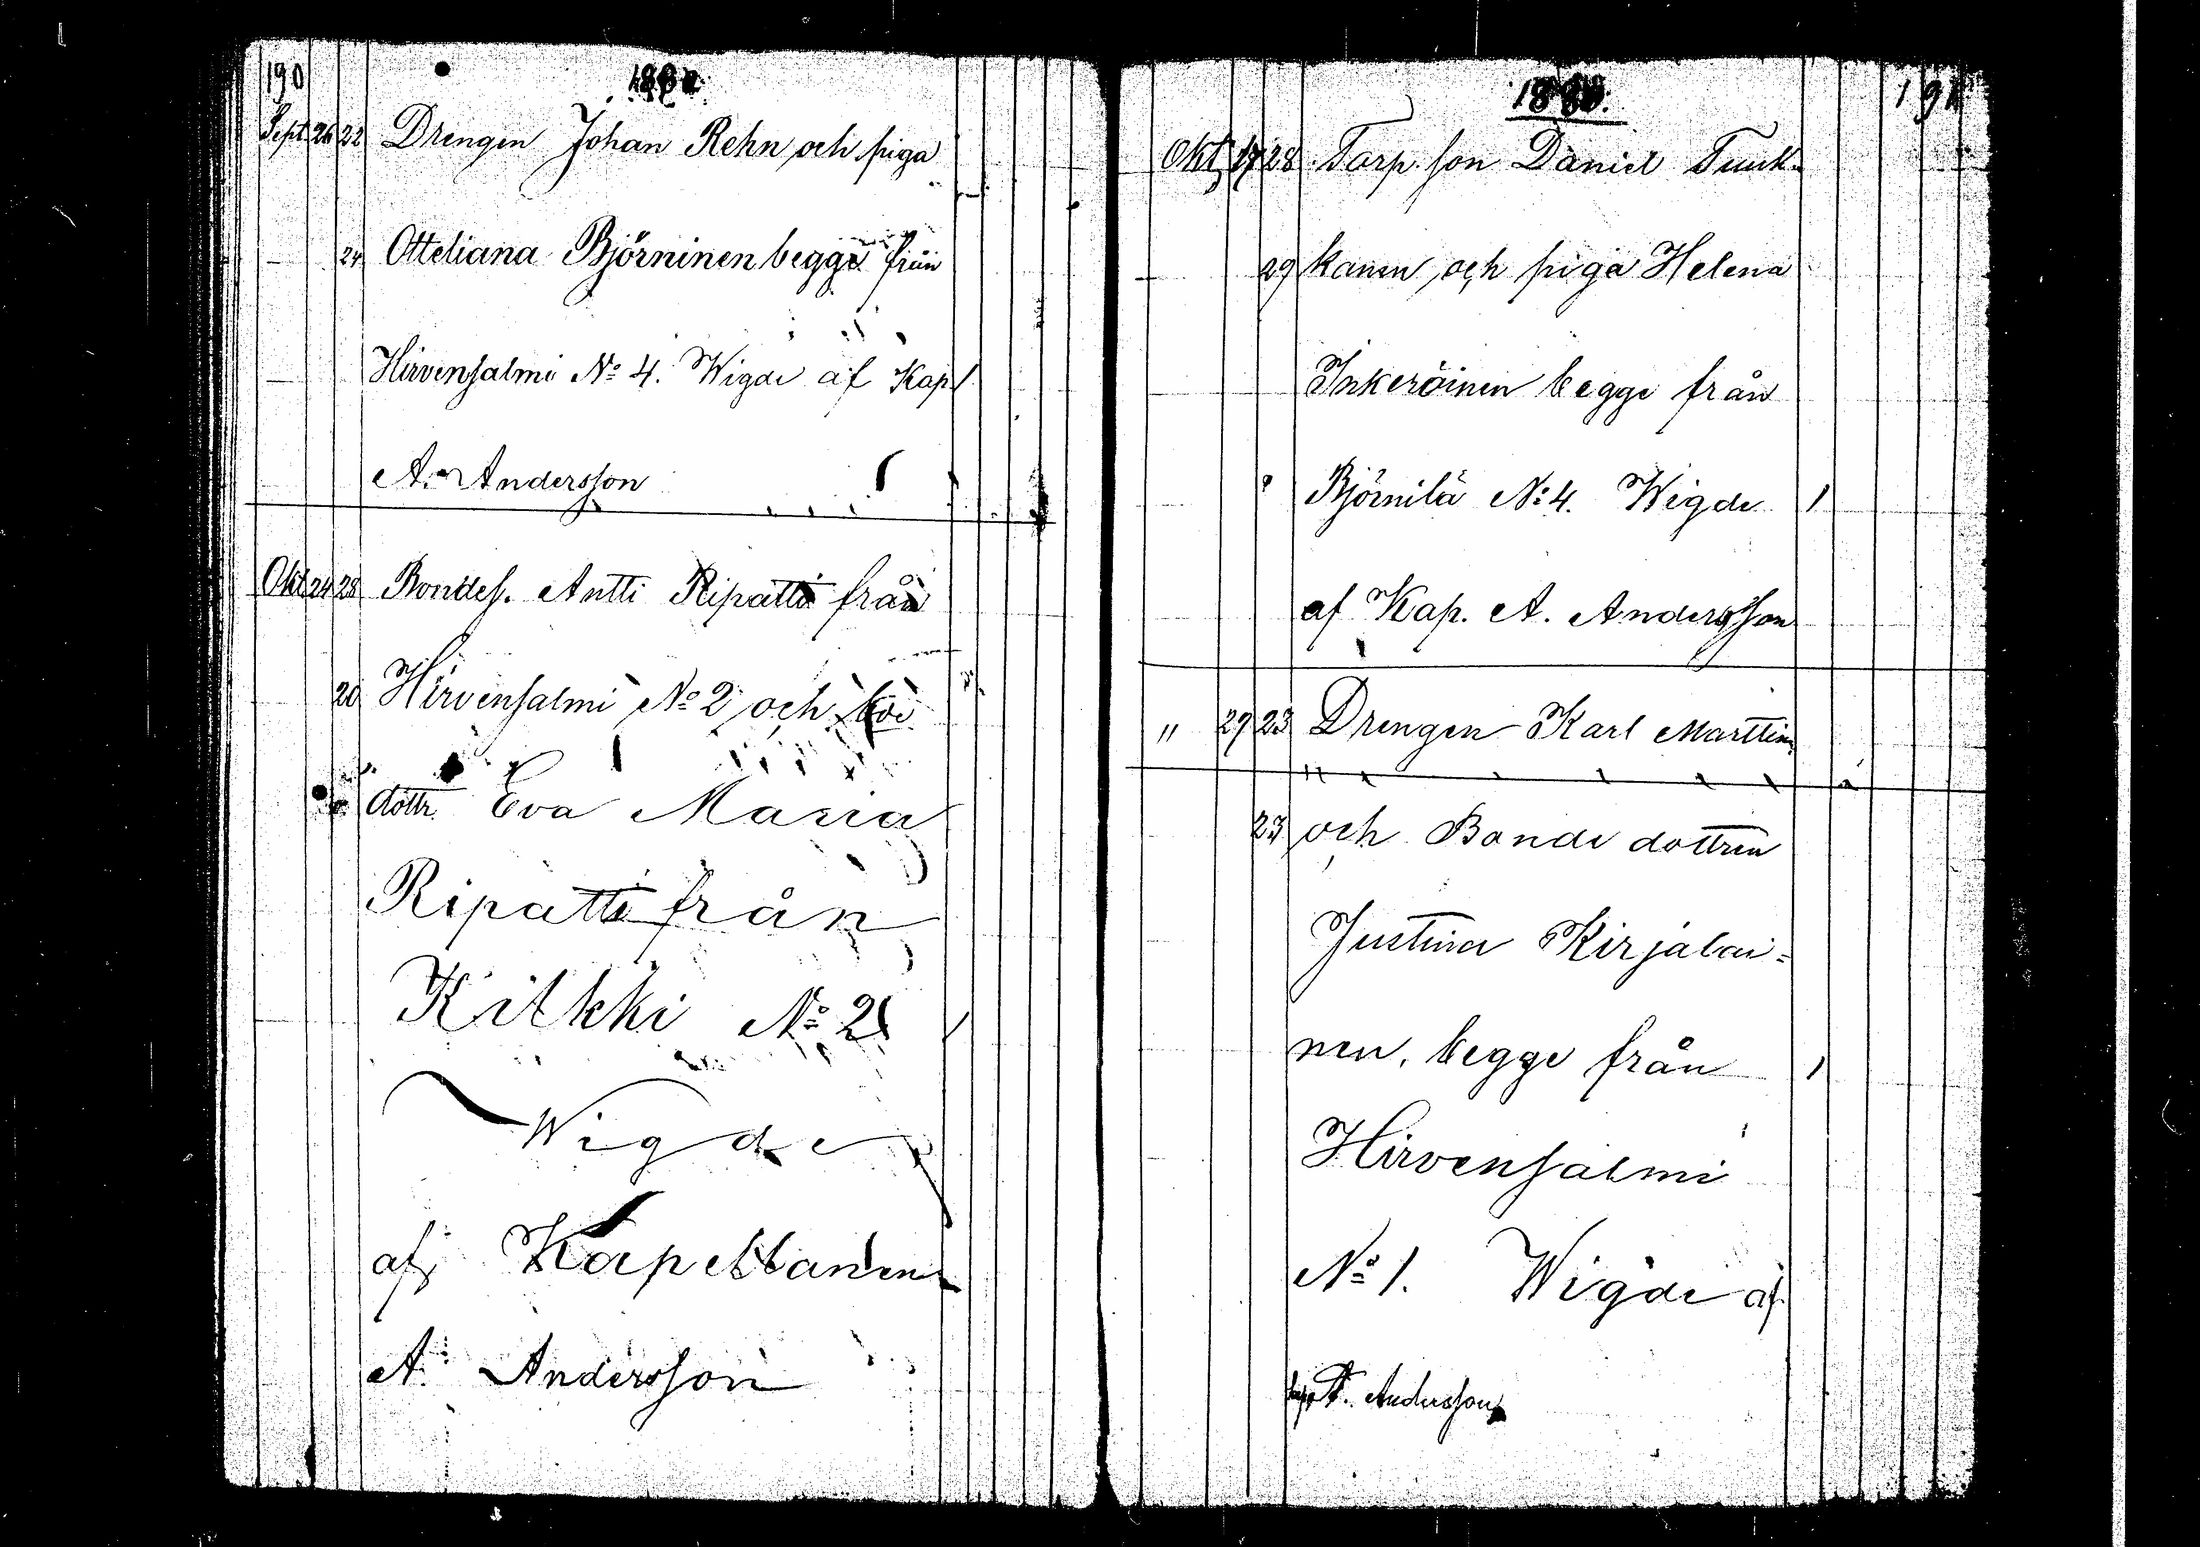 190
Sept. 26 22 Drengen Johan Rehn och piga
24 Otteliana Björninen begge från
Hirvensalmi No 4. Wigde af Kapl
A. Andersson
Okt. 24 28 Bondes. Antti Ripatti från
20 Hirvensalmi No 2 och
dottr. Eva Maria
Ripatti från
Kilkki No 2
Wigde
af Kapellanen
A. Andersson
Okt. 17 28 Torp. son Daniel Tuuk-
29 kanen och piga Helena
Inkeröinen begge från
Björnilä No 4. Wigde
af Kap. A. Andersson
" 29 23 Drengen Karl Marttin
23 och Bonde dottren
Justina Kirjalai=
nen, begge från
Hirvensalmi
No 1. Wigde af
Kap. A. Andersson